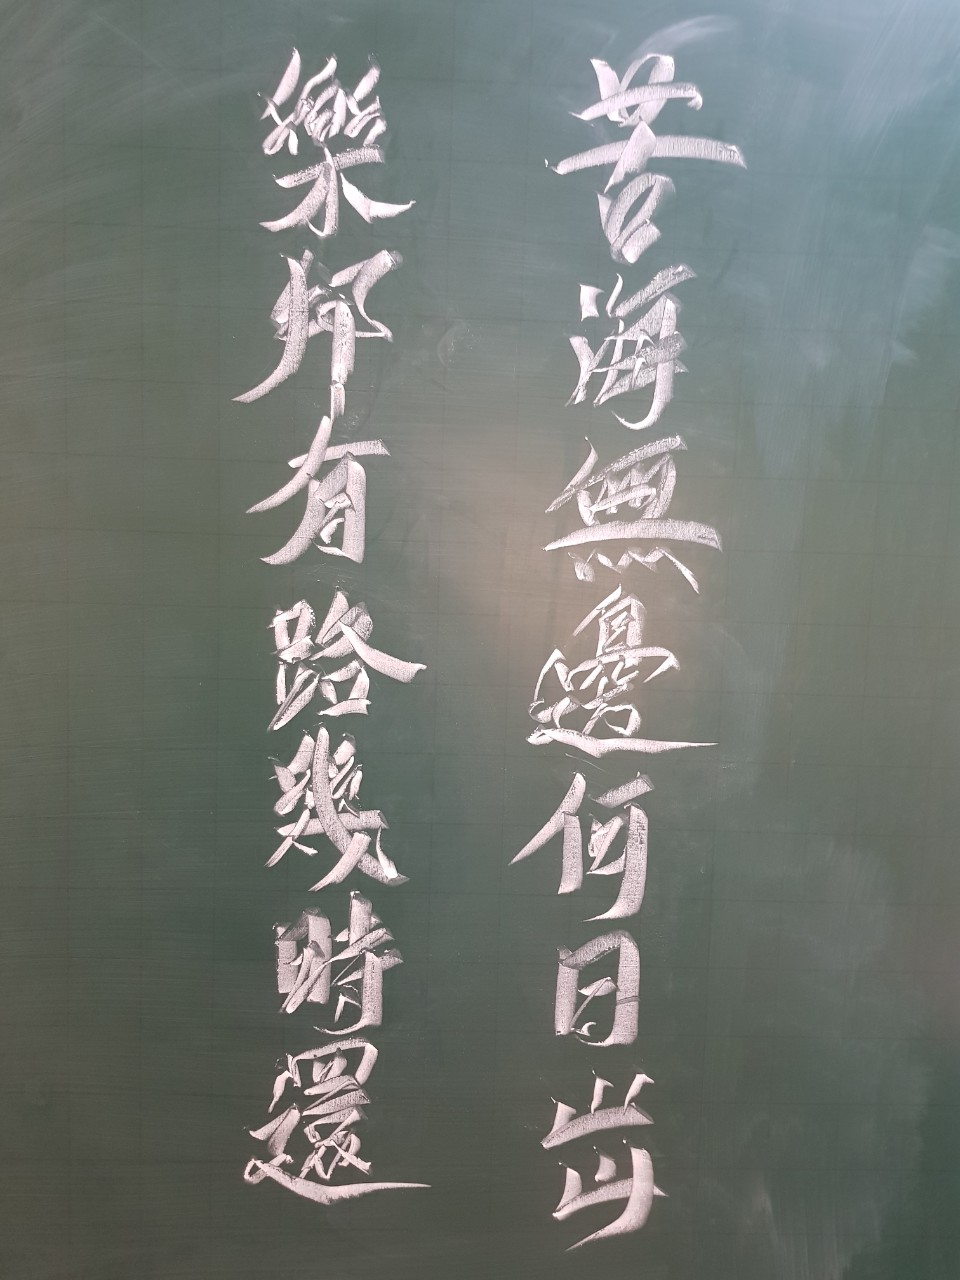 苦海無邊何日出
樂邦有路幾時還